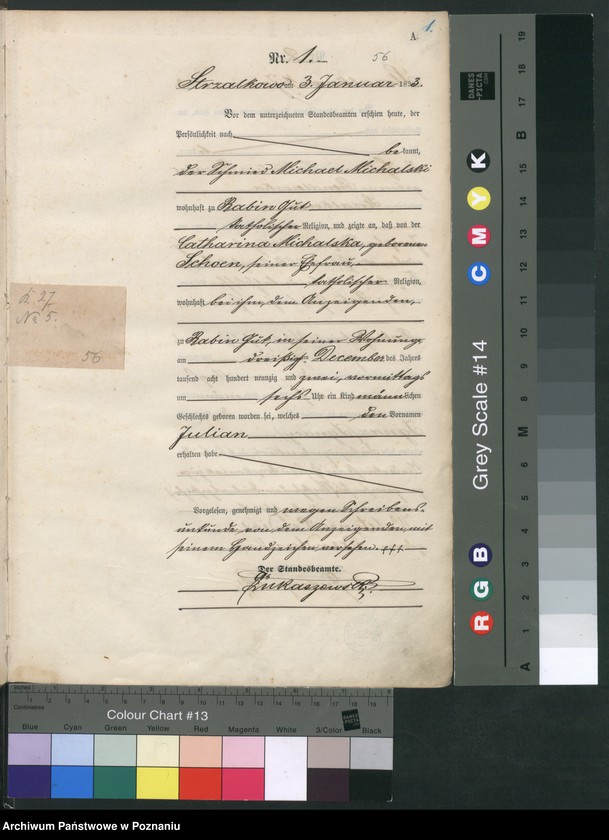 A
1.
Nr. 1.
56
Strzalkowo am 3. Januar 1893.
Vor dem unterzeichneten Standesbeamten erschien heute, der
Persönlichkeit nach
bekannt,
der Schmied Michael Michalski
wohnhaft zu Babin Gut
katholischer Religion, und zeigte an, daß von der
Catharina Michalska, geborenen
Schoen, seiner Ehefrau,
katholischer Religion,
wohnhaft bei ihm, dem Anzeigenden,
zu Babin Gut, in seiner Wohnung
am dreißigst. December des Jahres
tausend acht hundert neunzig und zwei, vormittags
um sechs Uhr ein Kind männlichen
Geschlechts geboren worden sei, welches den Vornamen
Julian
erhalten habe
Vorgelesen, genehmigt und wegen Schreibens-
unkunde von dem Anzeigenden mit
seinem Handzeichen versehen. +++
Der Standesbeamte.
Lukaszewski
No 5.
56
Grey Scale #14
DANES
-PICTA
.COM
A 1 2 3 4 5 6 M 8 9 10 11 12 13 14 15 B 17 18 19
R G B
C M Y K
Inches
Centimetres
Colour Chart #13
DANES
-PICTA
.COM
Blue Cyan Green Yellow Red Magenta White 3/Color Black
Archiwum Państwowe w Poznaniu